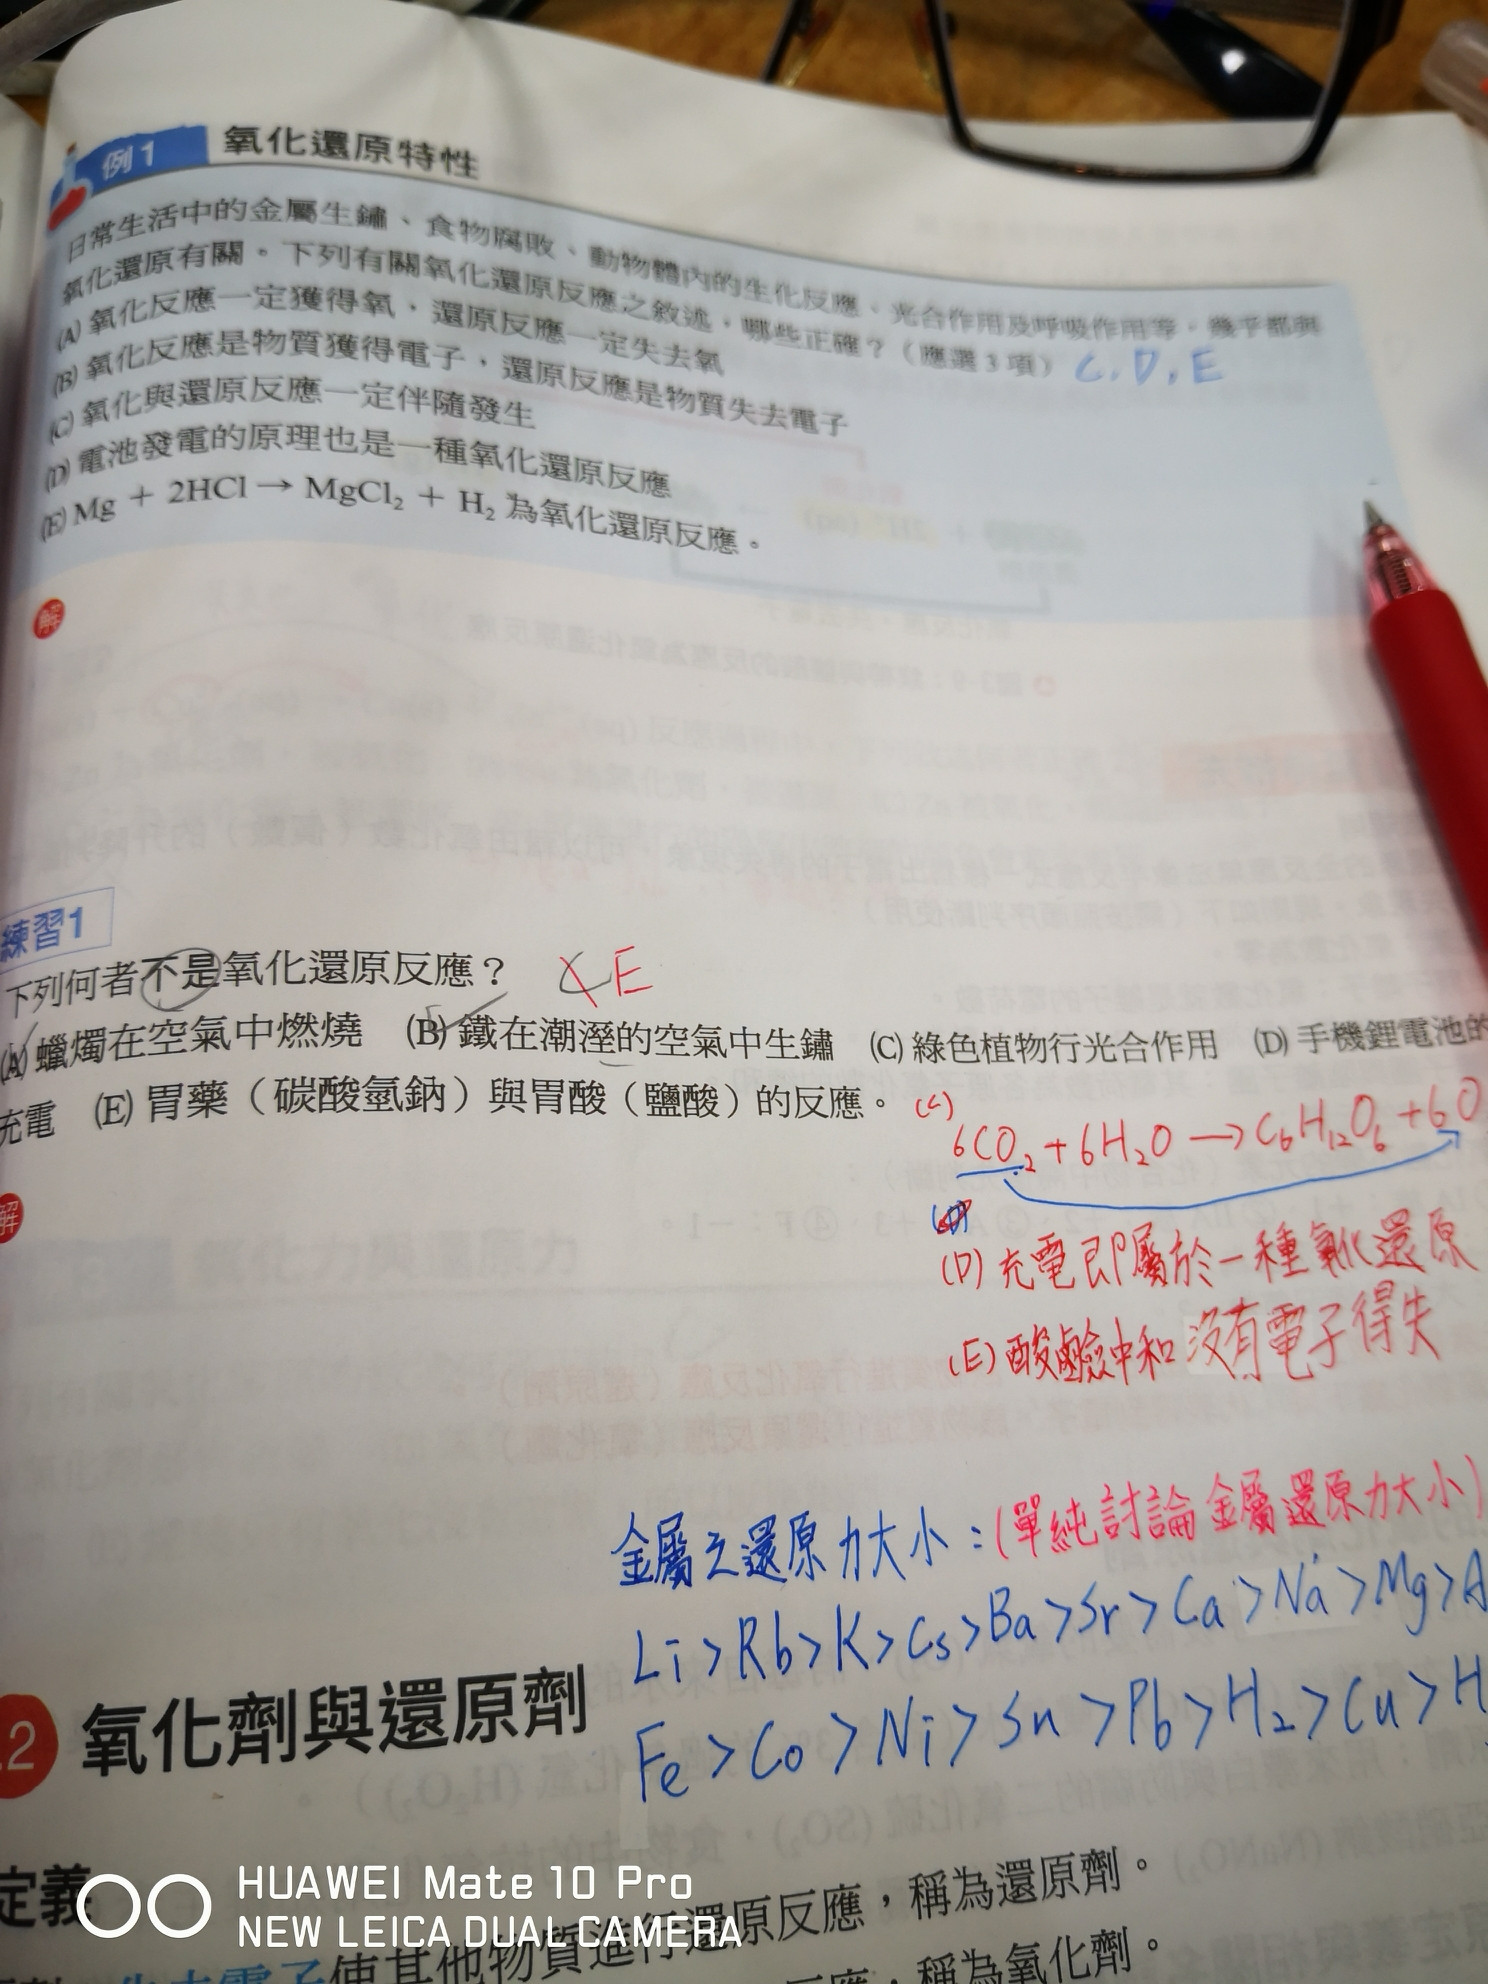 例1 氧化還原特性
日常生活中的金屬生鏽、食物腐敗、動物體內的生化反應、光合作用及呼吸作用等,幾乎都與
氧化還原有關。下列有關氧化還原反應之敘述,哪些正確?(應選3項) C,D,E
(A) 氧化反應一定獲得氧,還原反應一定失去氧
(B) 氧化反應是物質獲得電子,還原反應是物質失去電子
(C) 氧化與還原反應一定伴隨發生
(D) 電池發電的原理也是一種氧化還原反應
(E) Mg + 2HCl → MgCl₂ + H₂ 為氧化還原反應。
解
練習1
下列何者不是氧化還原反應? E
(A) 蠟燭在空氣中燃燒 (B) 鐵在潮溼的空氣中生鏽 (C) 綠色植物行光合作用 (D) 手機鋰電池的
充電 (E) 胃藥(碳酸氫鈉)與胃酸(鹽酸)的反應。
(C)
6CO₂+6H₂O → C₆H₁₂O₆+6O
解
(D) 充電即屬於一種氧化還原
(E) 酸鹼中和沒有電子得失
金屬之還原力大小:(單純討論金屬還原力大小)
Li>Rb>K>Cs>Ba>Sr>Ca>Na>Mg>A
Fe>Co>Ni>Sn>Pb>H₂>Cu>H
.2 氧化劑與還原劑
定義
使其他物質進行還原反應,稱為還原劑。
反應,稱為氧化劑。
HUAWEI Mate 10 Pro
NEW LEICA DUAL CAMERA